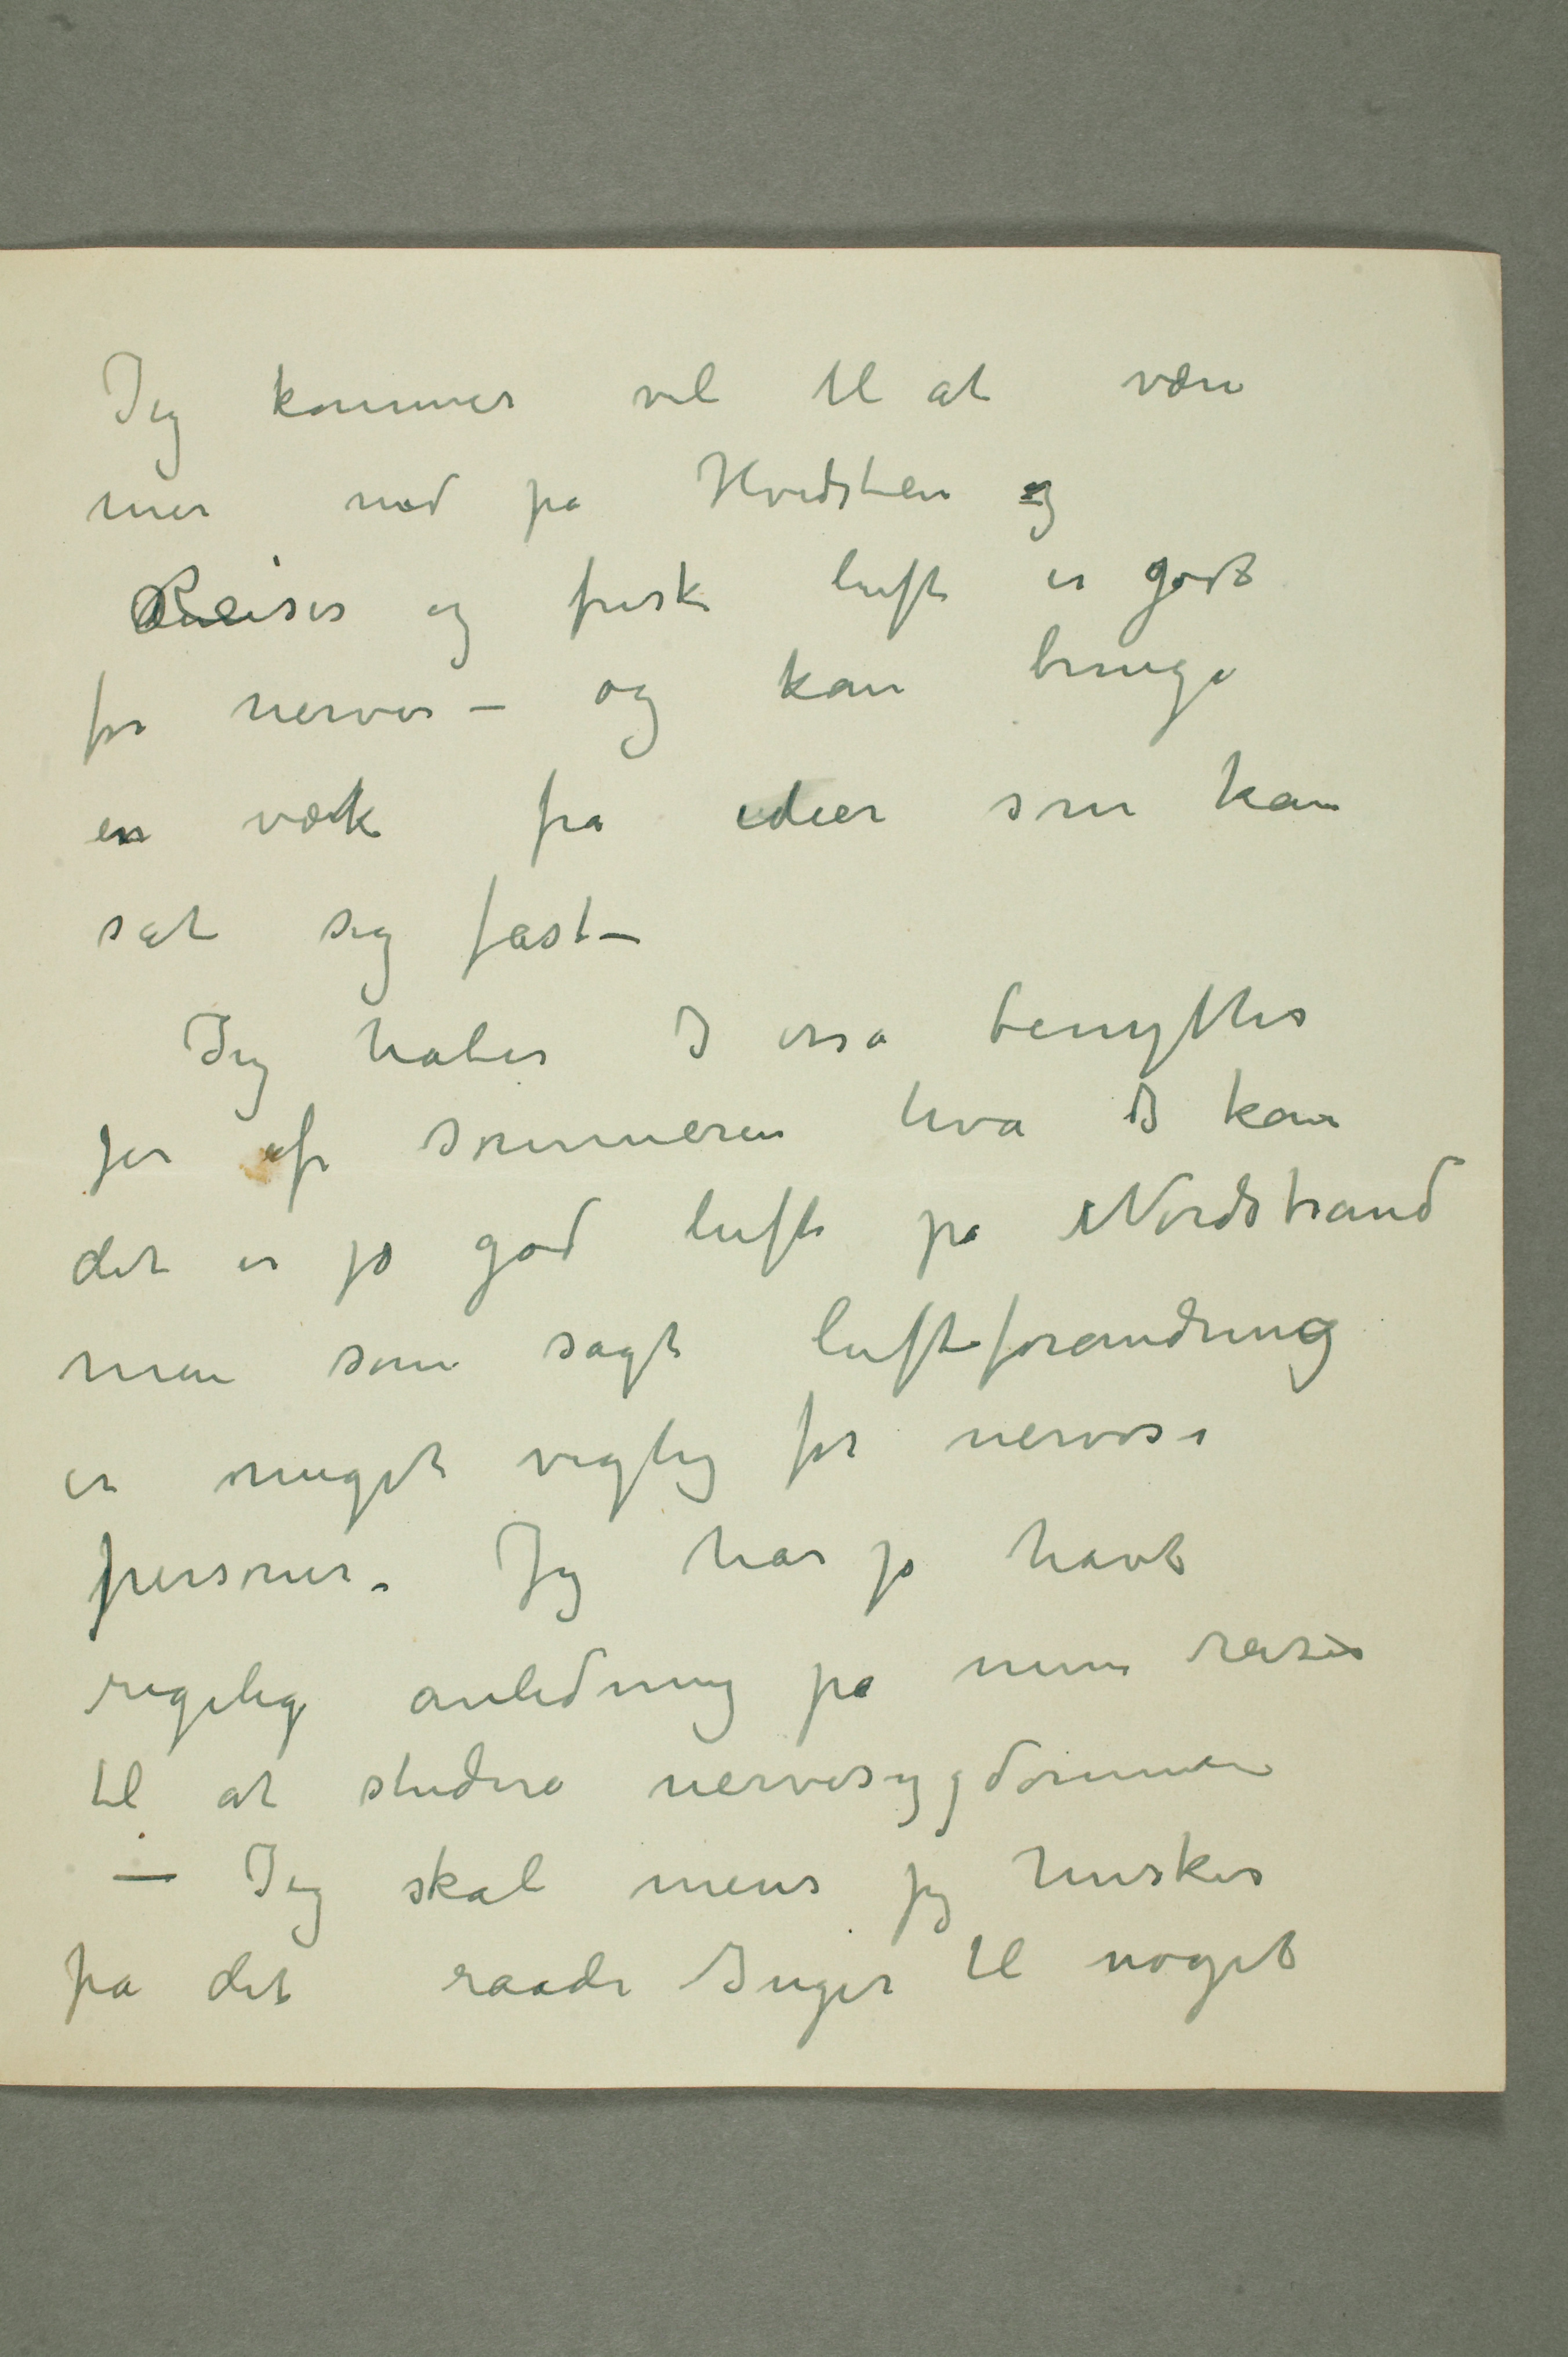 Jeg kommer vel til at være
mer ned på Hvidsten og
Reiser og frisk luft er godt
for nerver – og kan bringe
en væk fra ideer som kan
sat sig fast –
Jeg håber I osså benytter
jer af sommeren hva I kan
det er jo god luft på Nordstrand
men som sagt luftforandring
er meget vigtig for nervøse
personer. Jeg har jo havt
rigelig anledning på mine reiser
til at studere nervesygdommen
– Jeg skal mens jeg husker
på det raade Inger til noget